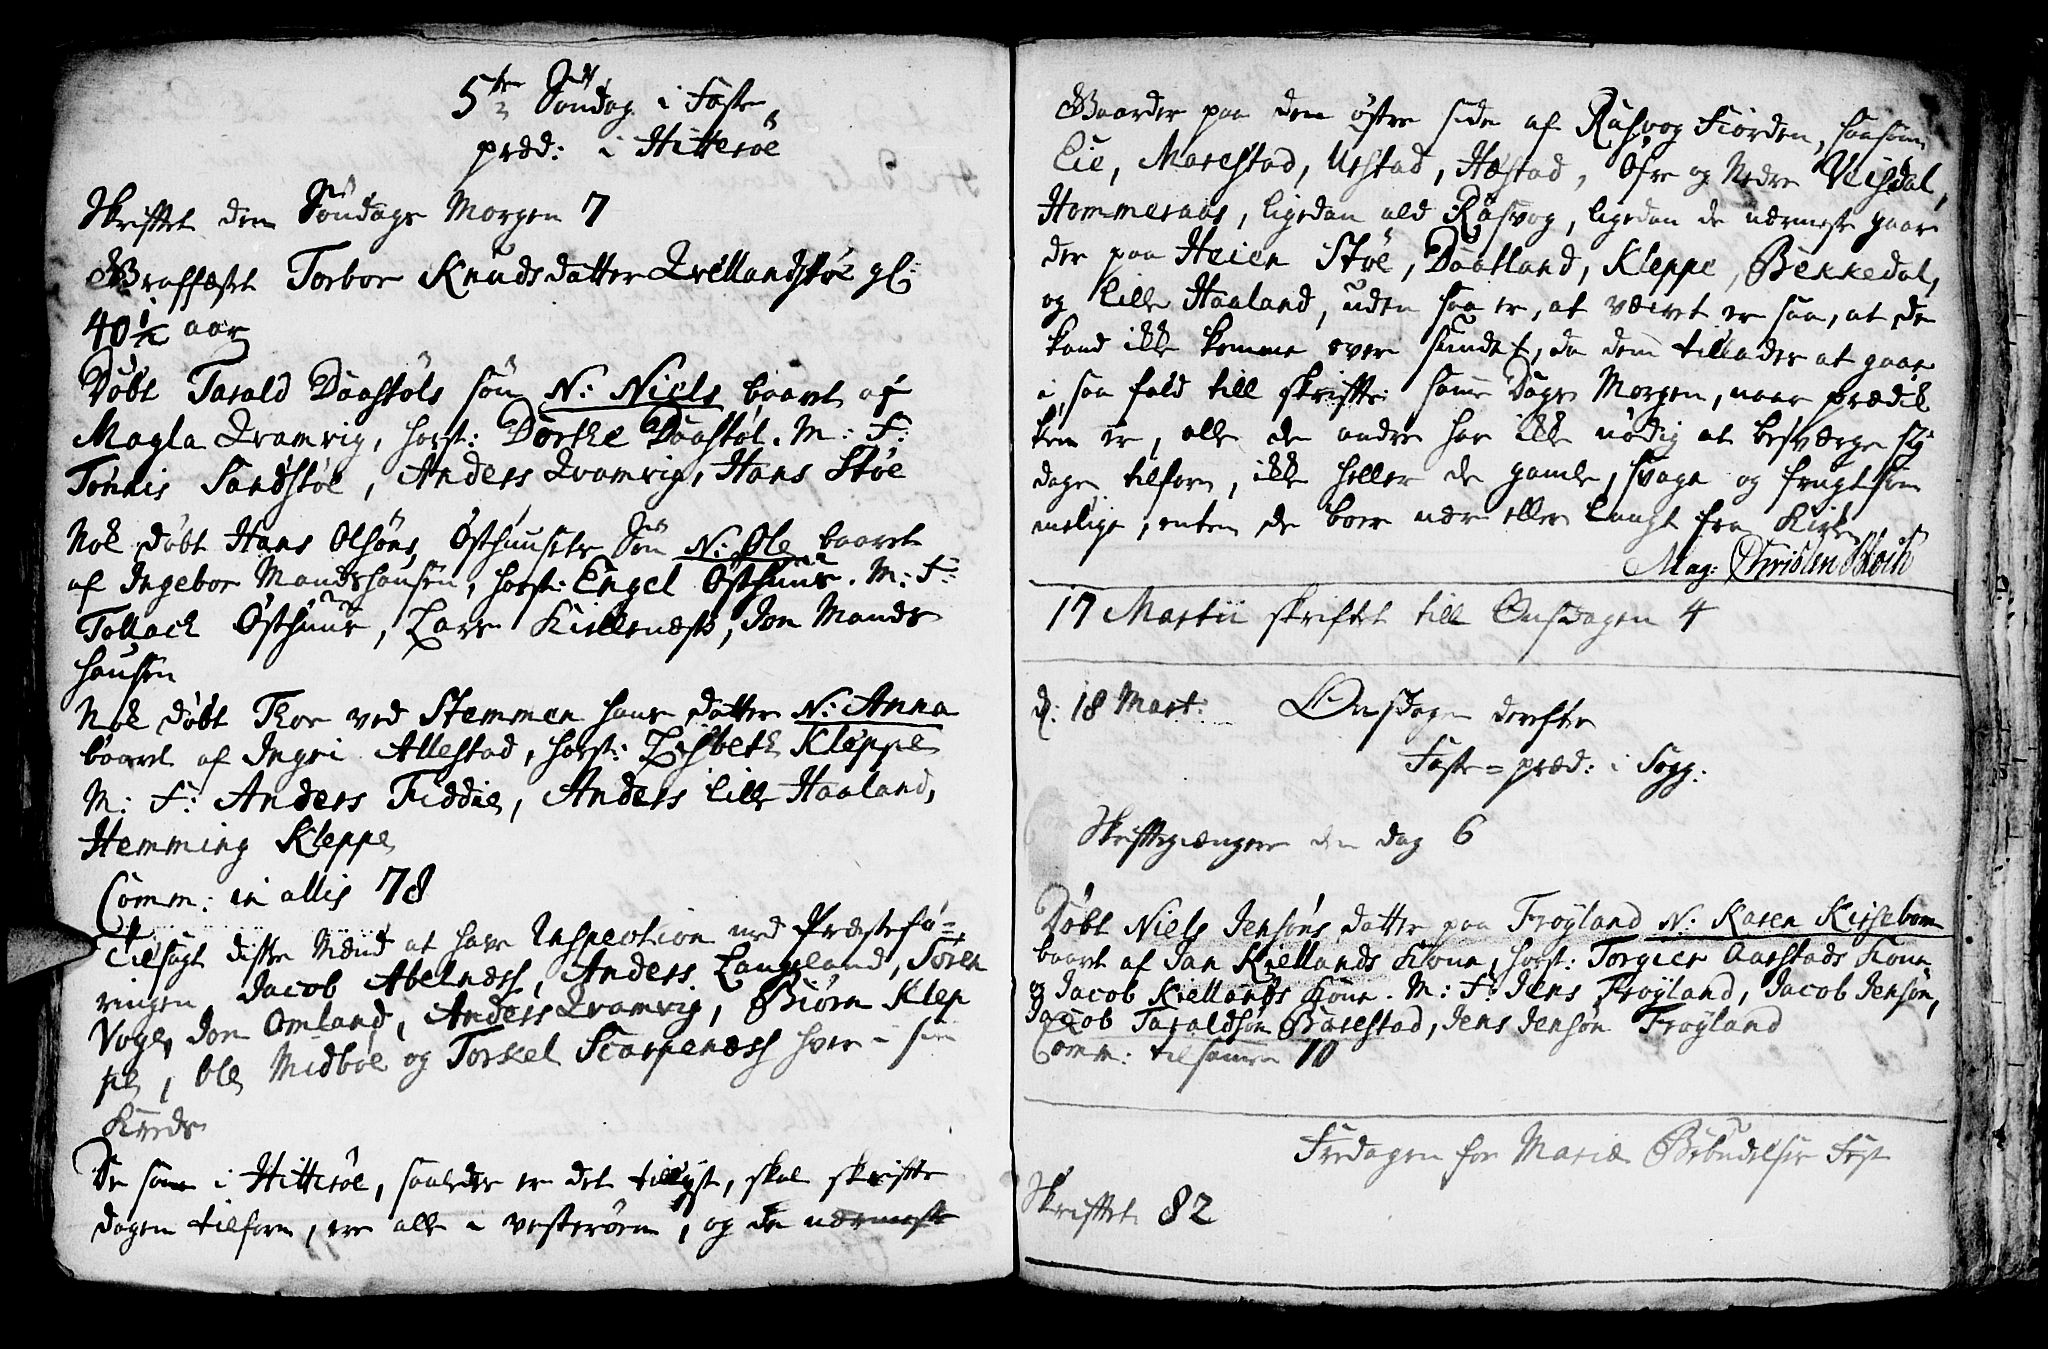 5te Söndag i Faste
præd: i Hitteröe
Skriftet den Söndags Morgen 7
Graffæstet Torbor Knudsdatter Qvellandstöe gl:
40 1/2 aar
Döbt Tarald Daastöls sön N: Niels, baaret af
Magla Qvamvig, horst: Dorthe Daastöl. M: F:
Tönnis Sandstöe, Anders Qvamvig, Hans Stöe
Nok döbt Hans Olsöns Östhuuses Sön N: Ole baaret
af Ingebor Mandshausen, horst: Engel Östhuus. M: F:
Tollack Östhuus, Lars Kiellsnæss, Jon Mands
hausen
Nok döbt Thor ved Stemmen hans datter N: Anna
baaret af Ingri Allestad, horst: Lisbeth Kleppe
M: F: Anders Fiddie, Anders lille Haaland,
Hemming Kleppe
Comm: in allis 78
Tilsagt disse Mænd at have Inspection med Præsteför=
ringen Jacob Abelnæss, Anders Langeland, Sören
Voge, Jon Omland, Anders Qvamvig, Biörn Klep
pe, Ole Midböe og Torkel Scarpenæss hver i sin
Kreds
De som i Hitteröe, saaledes er det tillyst, skal skrifte
dagen tilforn, ere alle i vesterören, og de nærmeste
Gaarder paa den östre side af Rasvog Fiorden, saasom
Eie, Marestad, Urstad, Hæstad, Öfre og Nedre Veisdal,
Hommeraas, ligedan ald Rasvog, ligedan de nærmeste gaar
der paa Heien Stöe, Daatland, Kleppe, Bekkedal,
og lille Haaland, uden saa er, at været er saa, at de
kand ikke komme over sundet, da dem tillades at gaae
i saa fald till skrifte samme Dags Morgen, naar prædik
ken er, alle de andre har ikke nödig at besværge sig
dagen tilforn, ikke heller de gamle, svage og frugtsom
melige, enten de boer nær eller langt fra Kirken
Mag: Christen
17 Martii skriftet till Onsdagen 4
d: 18 Mart: Onsdagen derefter
Faste=præd: i Sogg:
Skriftegiængere den dag 6
Döbt Niels Jensöns datter paa Fröyland N: Karen Kirsebom
baaret af Jan Kiellands Kone, horst: Torgier Aarstads Kone
og Jacob Kiellands Kone. M: F: Jens Fröyland, Jacob Jensön,
Jacob Taraldsön Barestad, Jens Jensön Fröyland
Comm: tilsamen 10
Fredagen for Mariæ Bebudelses Fest
Skriftet 82